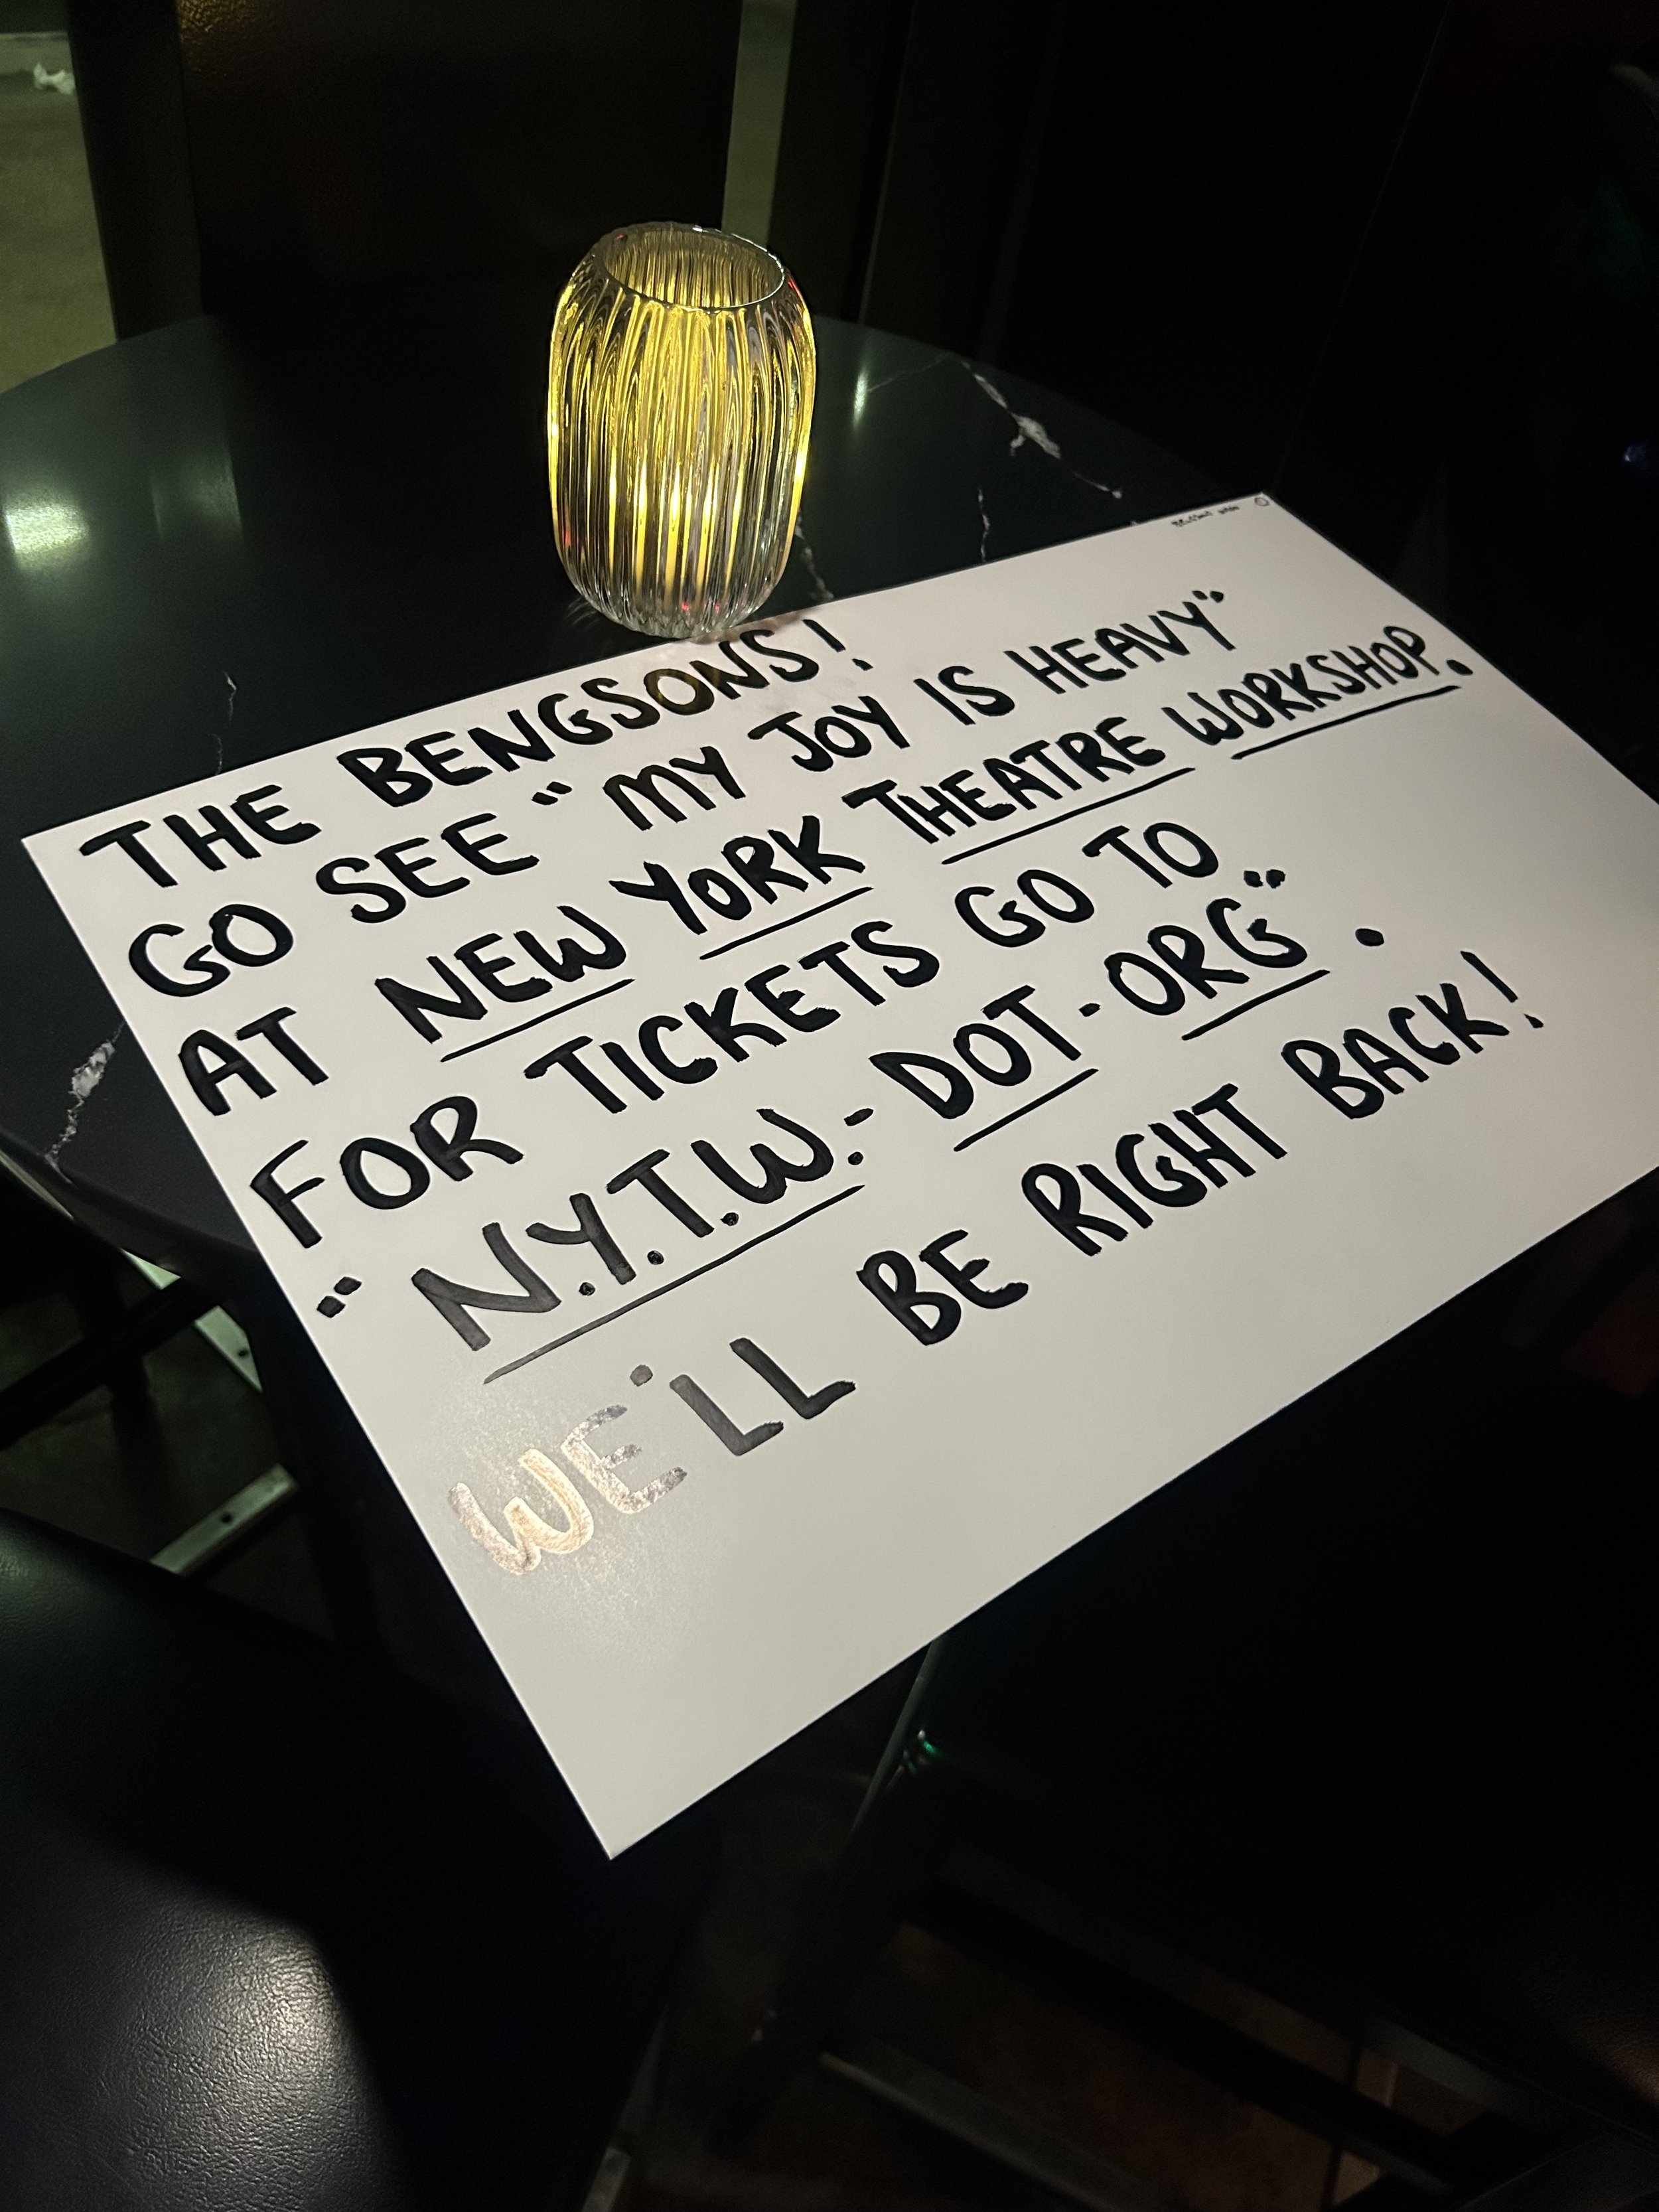 THE BENGSONS!
GO SEE "MY JOY IS HEAVY"
AT NEW YORK THEATRE WORKSHOP.
FOR TICKETS GO TO
"N.Y.T.W.-DOT-ORG".
WE'LL BE RIGHT BACK!